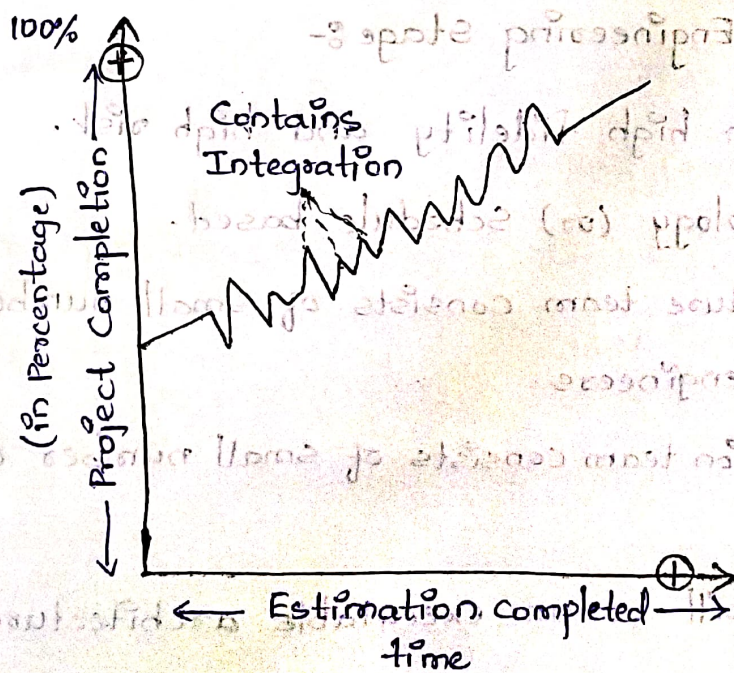 100%
(in Percentage)
Project Completion
Contains
Integration
Estimation completed
time